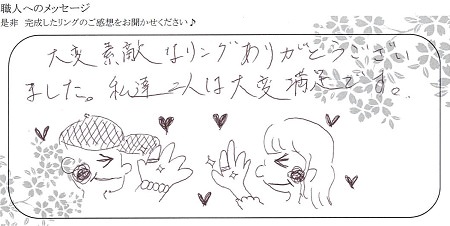 職人へのメッセージ
是非 完成したリングのご感想をお聞かせください♪
大変素敵なリングありがとうござい
ました。私達二人は大変満足です。